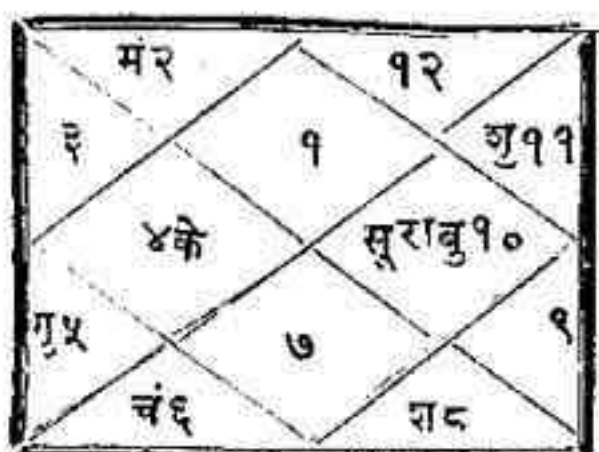 मं२ १२
३ १ शु११
४के सूराबु१०
गु५ ७ ९
चं६ श८